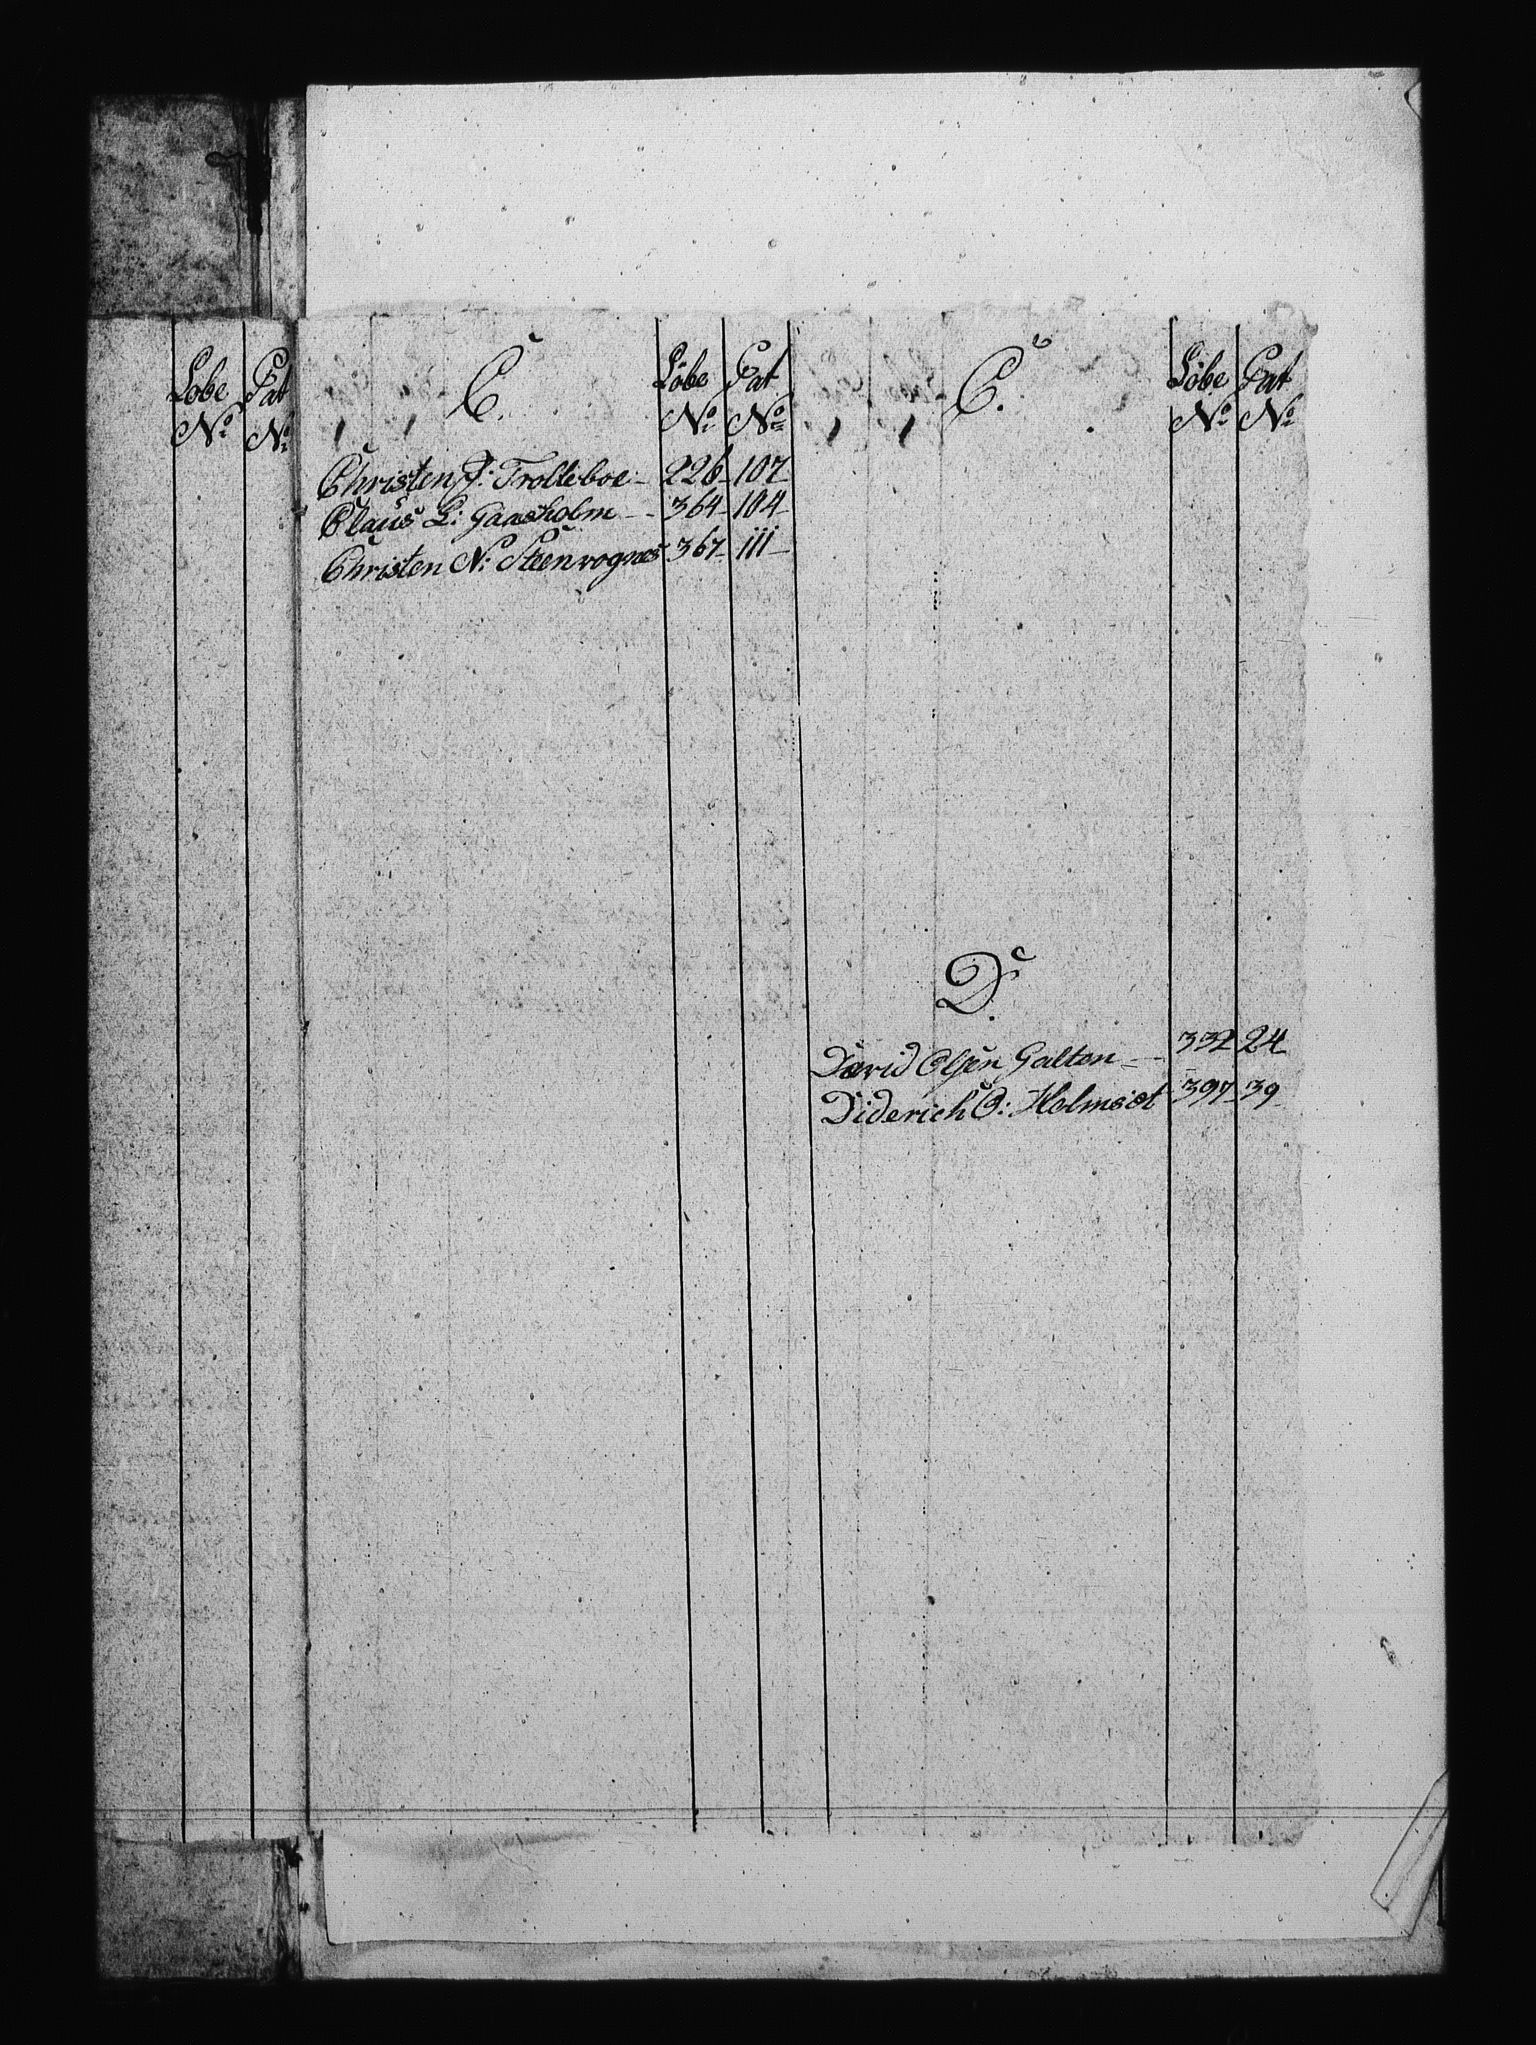 Løbe Pat
No. No.
C.
Løbe Pat
No. No.
Christen J: Trolleboe 226 107
Claus L: Gaasholm 364 104
Christen N: Steenvognes 367 111
C.
Løbe Pat
No. No.
D.
David Olsen Galten 332 24
Diderich O: Holmsæt 397 39